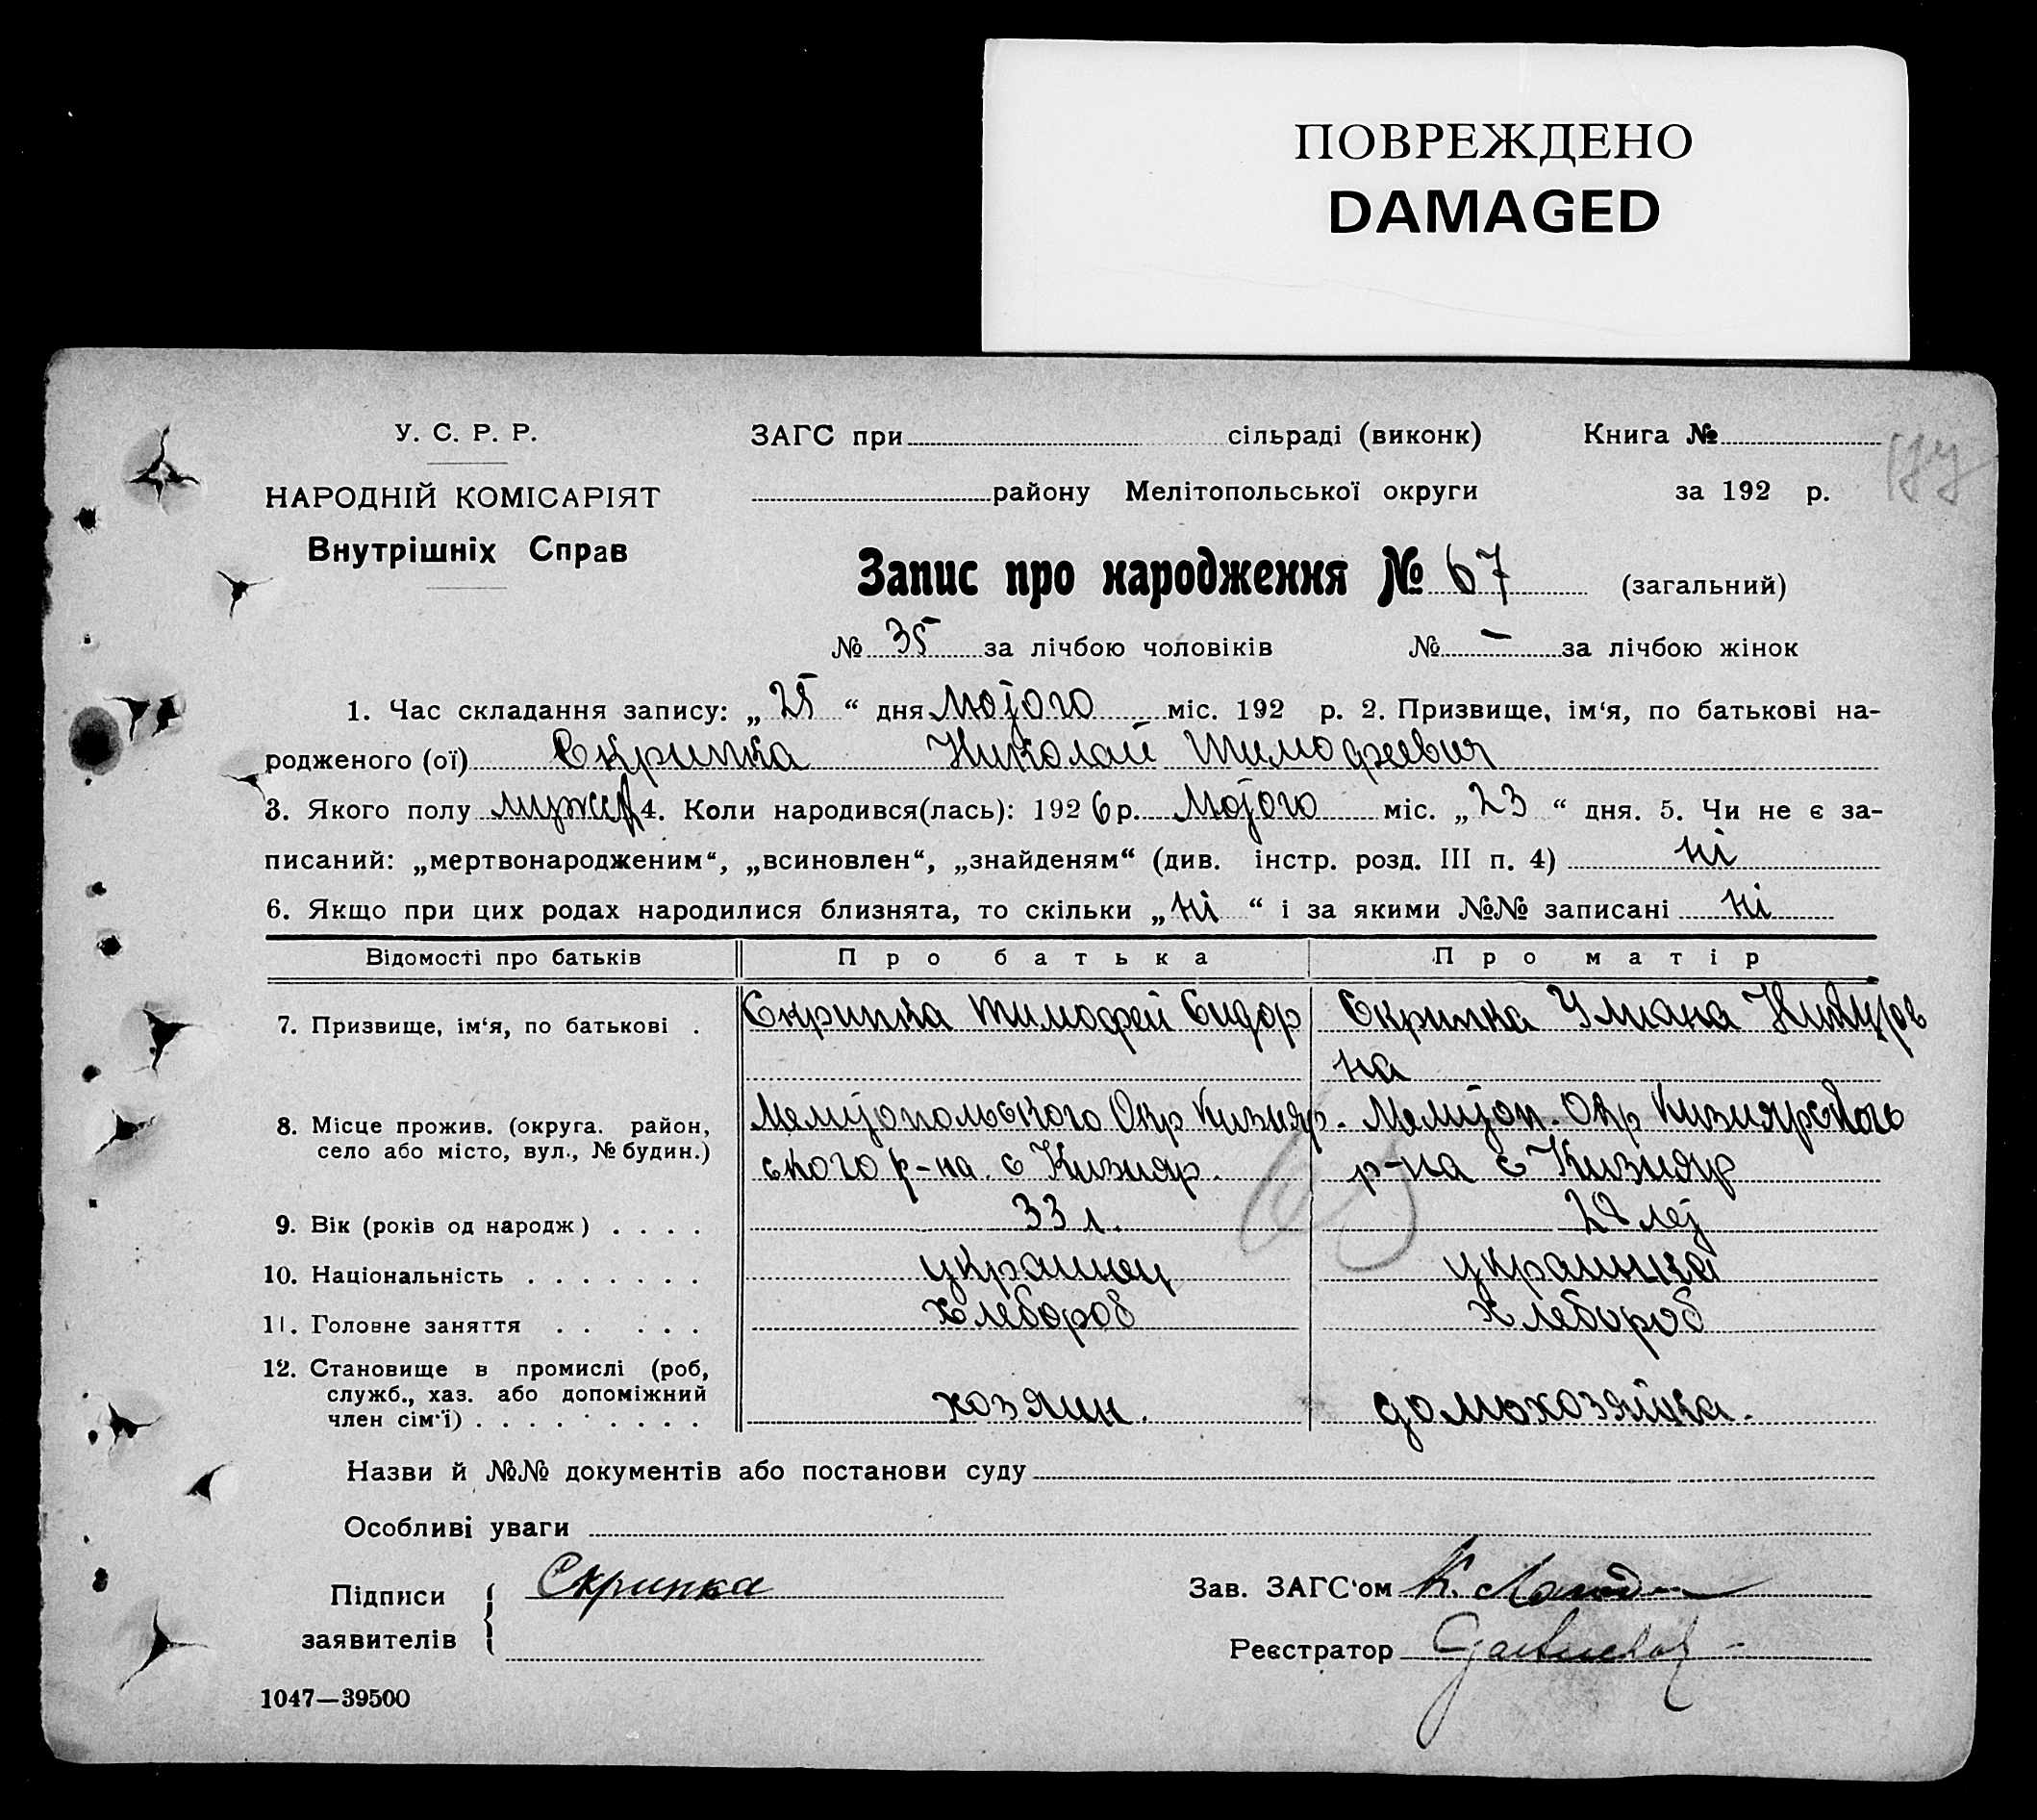 ПОВРЕЖДЕНО
DAMAGED
У. С. Р. Р.
ЗАГС при сільраді (виконк) Книга №
НАРОДНІЙ КОМІСАРІЯТ
району Мелітопольської округи за 192 р.
Внутрішніх Справ
Запис про народження № 67 (загальний)
№ 35 за лічбою чоловіків № — за лічбою жінок
1. Час складання запису: „25“ дня мотого міс. 192 р. 2. Призвище, ім‘я, по батькові на-
родженого (ої) Скрипка Николай Тимофеевич
3. Якого полу 4. Коли народився(лась): 1926 р. мотого міс. „23“ дня. 5. Чи не є за-
писаний: „мертвонародженим“, „всиновлен“, „знайденям“ (див. інстр. розд. III п. 4) ні
6. Якщо при цих родах народилися близнята, то скільки „ні“ і за якими №№ записані ні
Відомості про батьків Про батька Про матір
7. Призвище, ім‘я, по батькові . Скрипка Тимофей Сидор Скрипка Улиана
на
8. Місце прожив. (округа. район, Мелитопольского Окр Кизияр- Мелитоп. Окр Кизиярского
село або місто, вул., № будин.) ского р-на. с Кизияр. р-на с Кизияр
9. Вік (років од народж) . . . . 33 л. лет
10. Національність . . . . . . . украинец украинка
11. Головне заняття . . . . . хлебороб хлебороб
12. Становище в промислі (роб,
служб., хаз. або допоміжний
член сім‘ї) . . . . . . . . . хозяин. домохозяйка.
Назви й №№ документів або постанови суду
Особливі уваги
Підписи Скрипка Зав. ЗАГС‘ом К.
заявителів Реєстратор
1047—39500